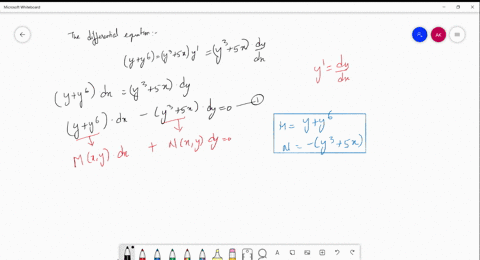 Microsoft Whiteboard
The differential equation:-
(y+y⁶)=(y³+5x) y' = (y³+5x) dy/dx
y' = dy/dx
(y+y⁶) dx = (y³+5x) dy
(y+y⁶)·dx − (y³+5x)·dy=0 —①
M(x,y) dx + N(x,y) dy=0
M = y+y⁶
N = −(y³+5x)
AK